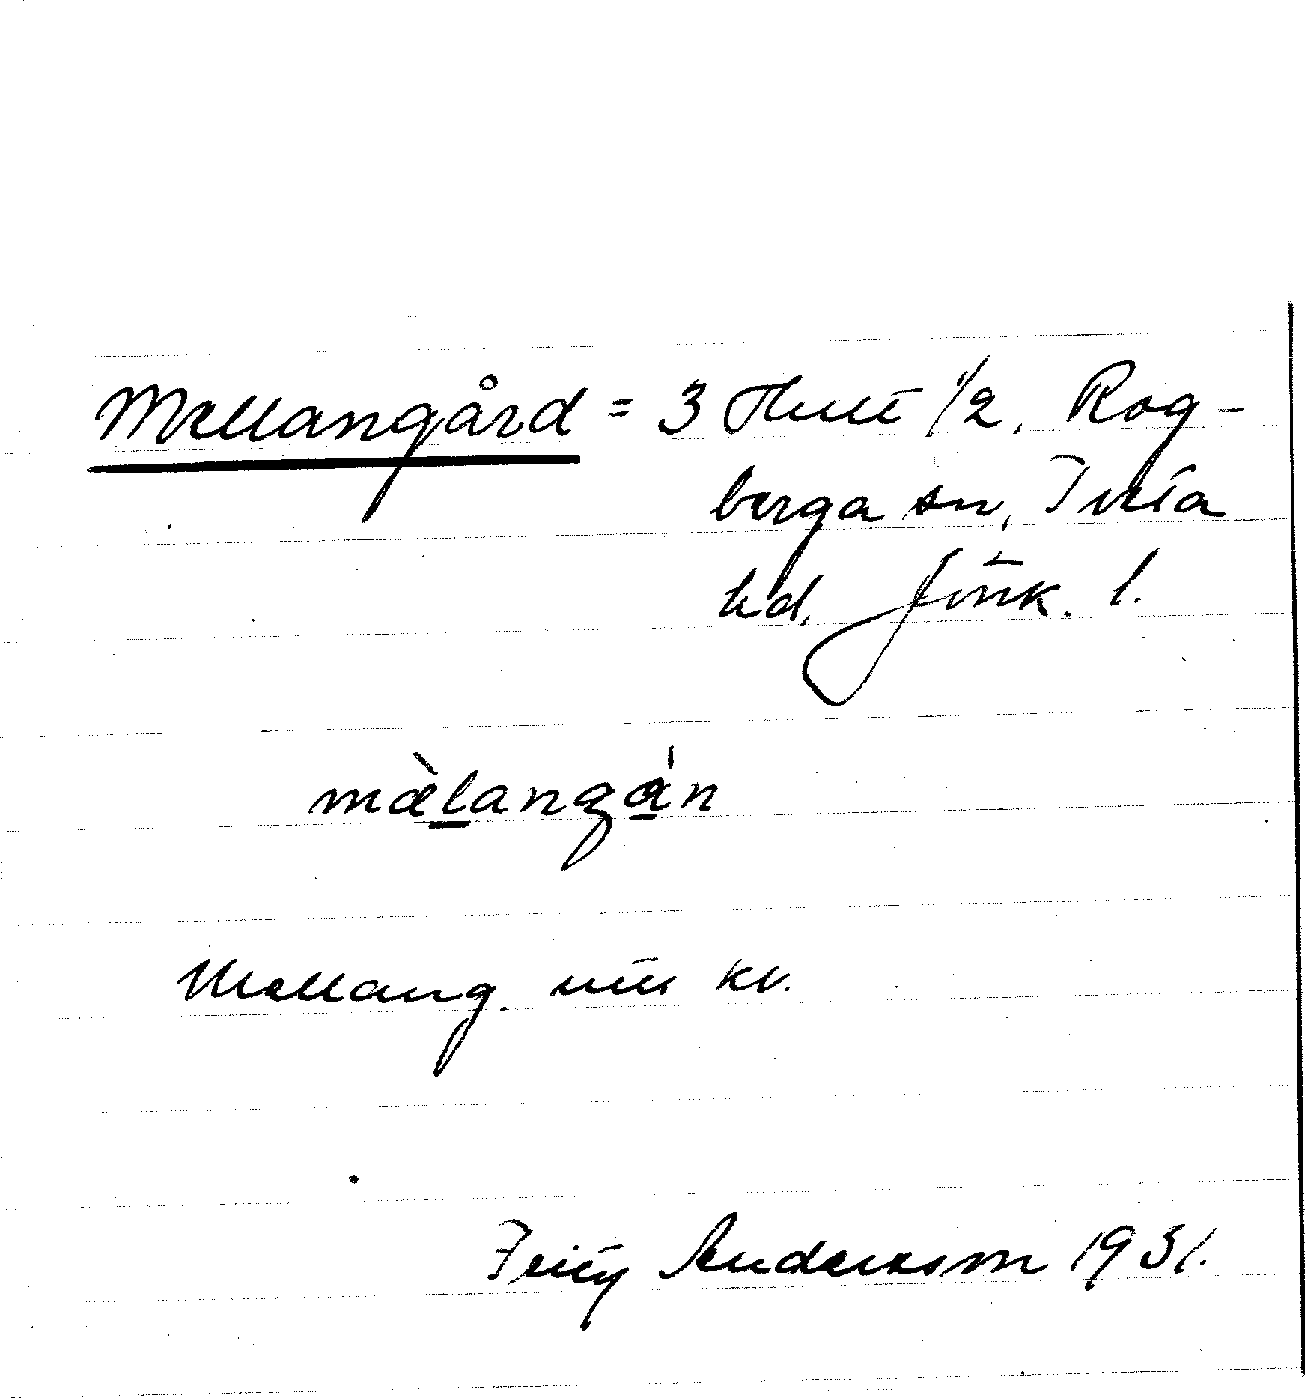 Mellangård = 3 Hult 1/2, Rog-
berga sn, Tveta
hd, Jönk. l.
mæ̀langɑ́n
Mellang. utu kv.
Fritz Andersson 1931.